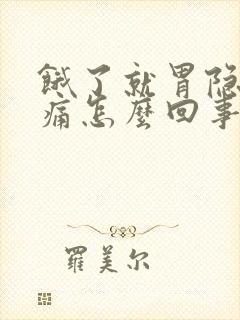 餓了就胃隐
痛怎麽回事
羅美尔